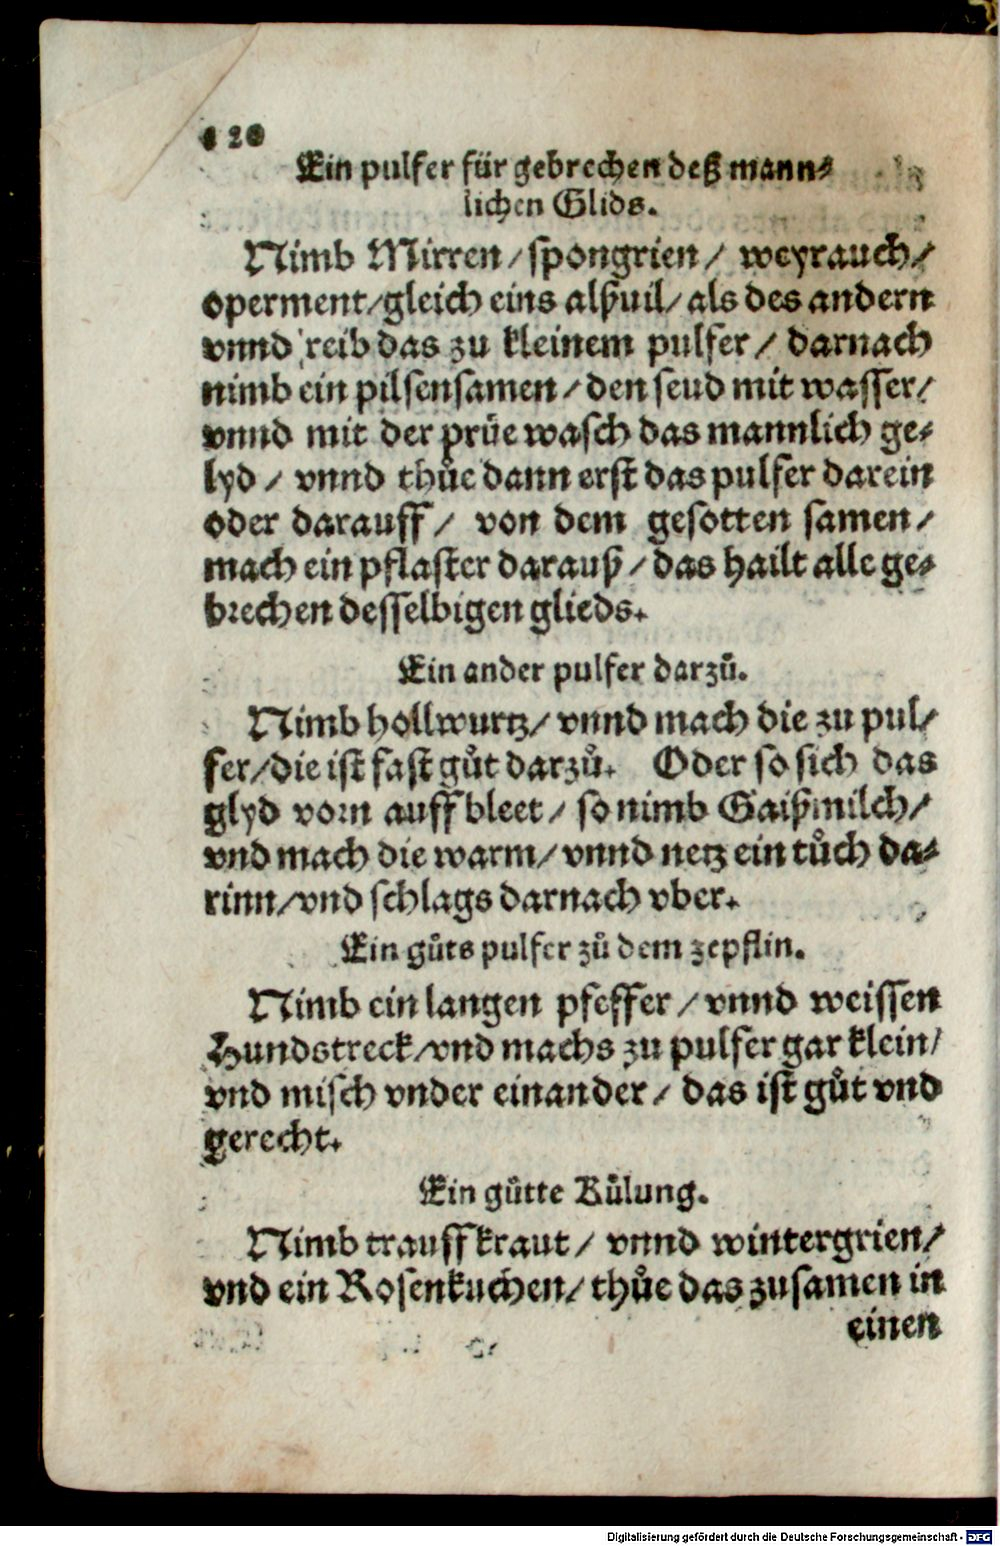 120
Ein pulfer für gebrechen deß mann⸗
lichen Glids.
Nimb Mirren / spongrien / weyrauch /
operment / gleich eins alßuil / als des andern
vnnd reib das zu kleinem pulfer / darnach
nimb ein pilsensamen / den seud mit wasser /
vnnd mit der prüe wasch das mannlich ge⸗
lyd / vnnd thůe dann erst das pulfer darein
oder darauff / von dem gesotten samen /
mach ein pflaster darauß / das hailt alle ge⸗
brechen desselbigen glieds.
Ein ander pulfer darzů.
Nimb hollwurtz / vnnd mach die zu pul/
fer / die ist fast gůt darzů. Oder so sich das
glyd vorn auff bleet / so nimb Gaißmilch /
vnd mach die warm / vnnd netz ein tůch da⸗
rinn / vnd schlags darnach vber.
Ein gůts pulfer zů dem zepflin.
Nimb ein langen pfeffer / vnnd weissen
Hundstreck / vnd machs zu pulfer gar klein /
vnd misch vnder einander / das ist gůt vnd
gerecht.
Ein gůtte Külung.
Nimb trauffkraut / vnnd wintergrien /
vnd ein Rosenkuchen / thůe das zusamen in
einen
Digitalisierung gefördert durch die Deutsche Forschungsgemeinschaft - DFG